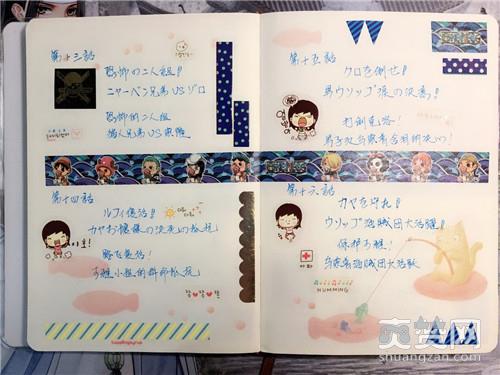 第十三話
恐怖の二人組!
ニャーバン兄弟VSゾロ
恐怖的二人組
猫人兄弟VS索隆
第十四話
ルフィ復活!
カヤお嬢様の決死の抵抗
路飞复活!
可雅小姐的拼命抵抗
第十五話
クロを倒せ!
男ウソップ涙の決意!
打倒克洛!
男子汉乌索普含泪的决心!
第十六話
カヤを守れ!
ウソップ海賊団大活躍!
保护可雅!
乌索普海贼团大活跃
HUMMING
shuangzan.com